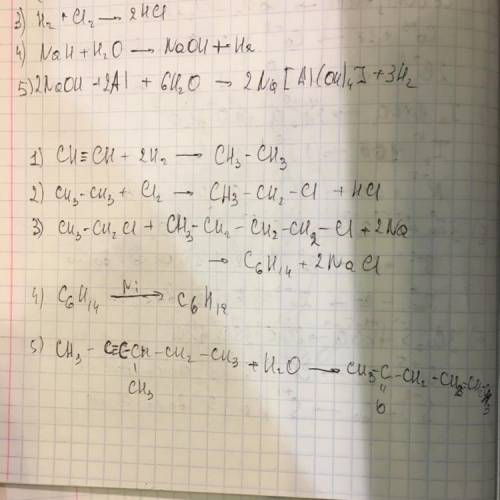 3) H₂ + Cl₂ → 2HCl
4) NaH + H₂O → NaOH + H₂
5) 2NaOH + 2Al + 6H₂O → 2Na[Al(OH)₄] + 3H₂
1) CH≡CH + 2H₂ → CH₃-CH₃
2) CH₃-CH₃ + Cl₂ → CH₃-CH₂-Cl + HCl
3) CH₃-CH₂Cl + CH₃-CH₂-CH₂-CH₂-Cl + 2Na
→ C₆H₁₄ + 2NaCl
4) C₆H₁₄ Ni → C₆H₁₂
5) CH₃- -CH-CH₂-CH₃ + H₂O → CH₃-C-CH₂-
CH₃